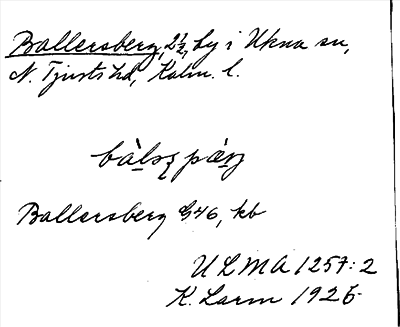 Ballersberg, 2 1/2, by i Ukna sn,
N. Tjusts hd, Kalm. l.
Ballersberg G46, kb
ULMA 1257:2
K. Larm 1926